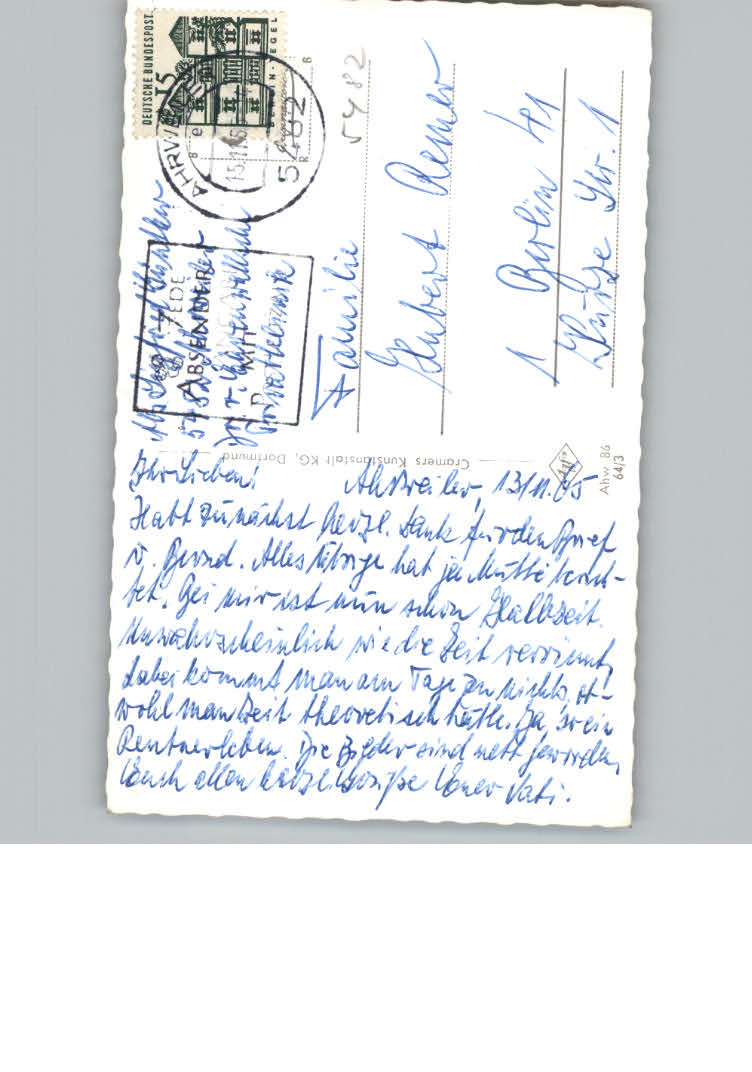 DEUTSCHE BUNDESPOST
15
BERLIN-TEGEL
AHRWEILER
15.11.65
5482
5482
JEDE
ABSENDER
MIT
Familie
Hubert
1 Berlin 41
Str. 1
Cramers Kunstanstalt KG, Dortmund
Ahw 86
64/3
Ihr Lieben! Ahrweiler, 13/11.65
Habt zunächst herzl. Dank für den Brief
v. Bernd. Alles Übrige hat ja Mutti berich-
tet. Bei mir ist nun schon Halbzeit.
Unwahrscheinlich wie die Zeit verrinnt,
dabei kommt man am Tage zu nichts, ob-
wohl man Zeit theoretisch hätte. Ja, so ein
Rentnerleben. Die Bilder sind nett geworden,
Euch allen herzl. Grüße Euer Vati.